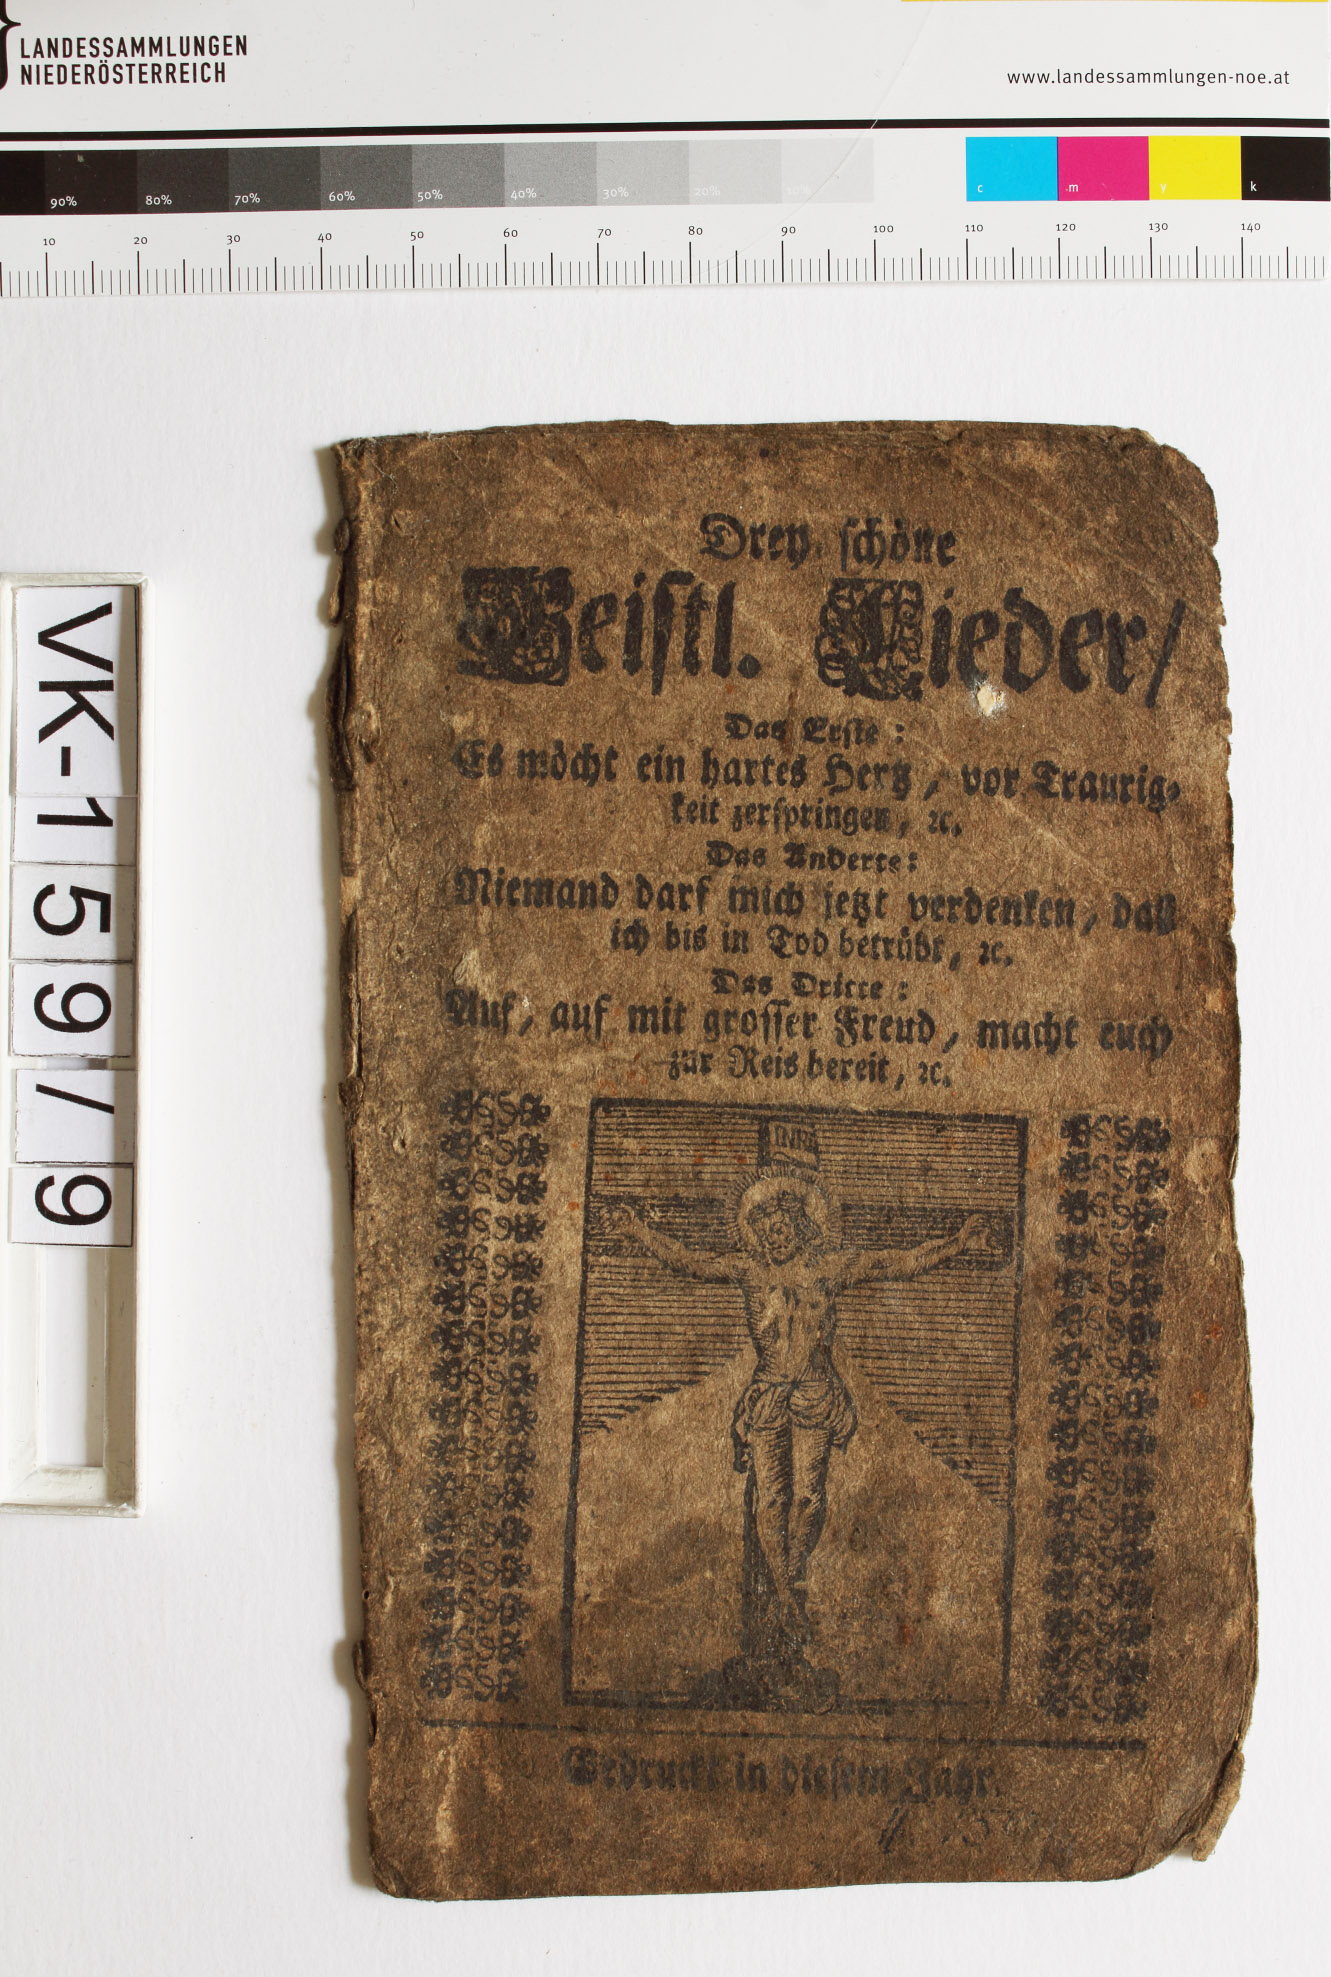 LANDESSAMMLUNGEN
NIEDERÖSTERREICH
www.landessammlungen-noe.at
90% 80% 70% 60% 50% 40% 30% 20% 10% c m y k
10 20 30 40 50 60 70 80 90 100 110 120 130 140
VK-1599/9
Drey schöne
Geistl. Lieder/
Das Erste:
Es möcht ein hartes Hertz, vor Traurig-
keit zerspringen, ꝛc.
Das Anderte:
Niemand darf mich jetzt verdenken, daß
ich bis in Tod betrübt, ꝛc.
Das Dritte:
Auf, auf mit grosser Freud, macht euch
zur Reis bereit, ꝛc.
INRI
Gedruckt in diesem Jahr.